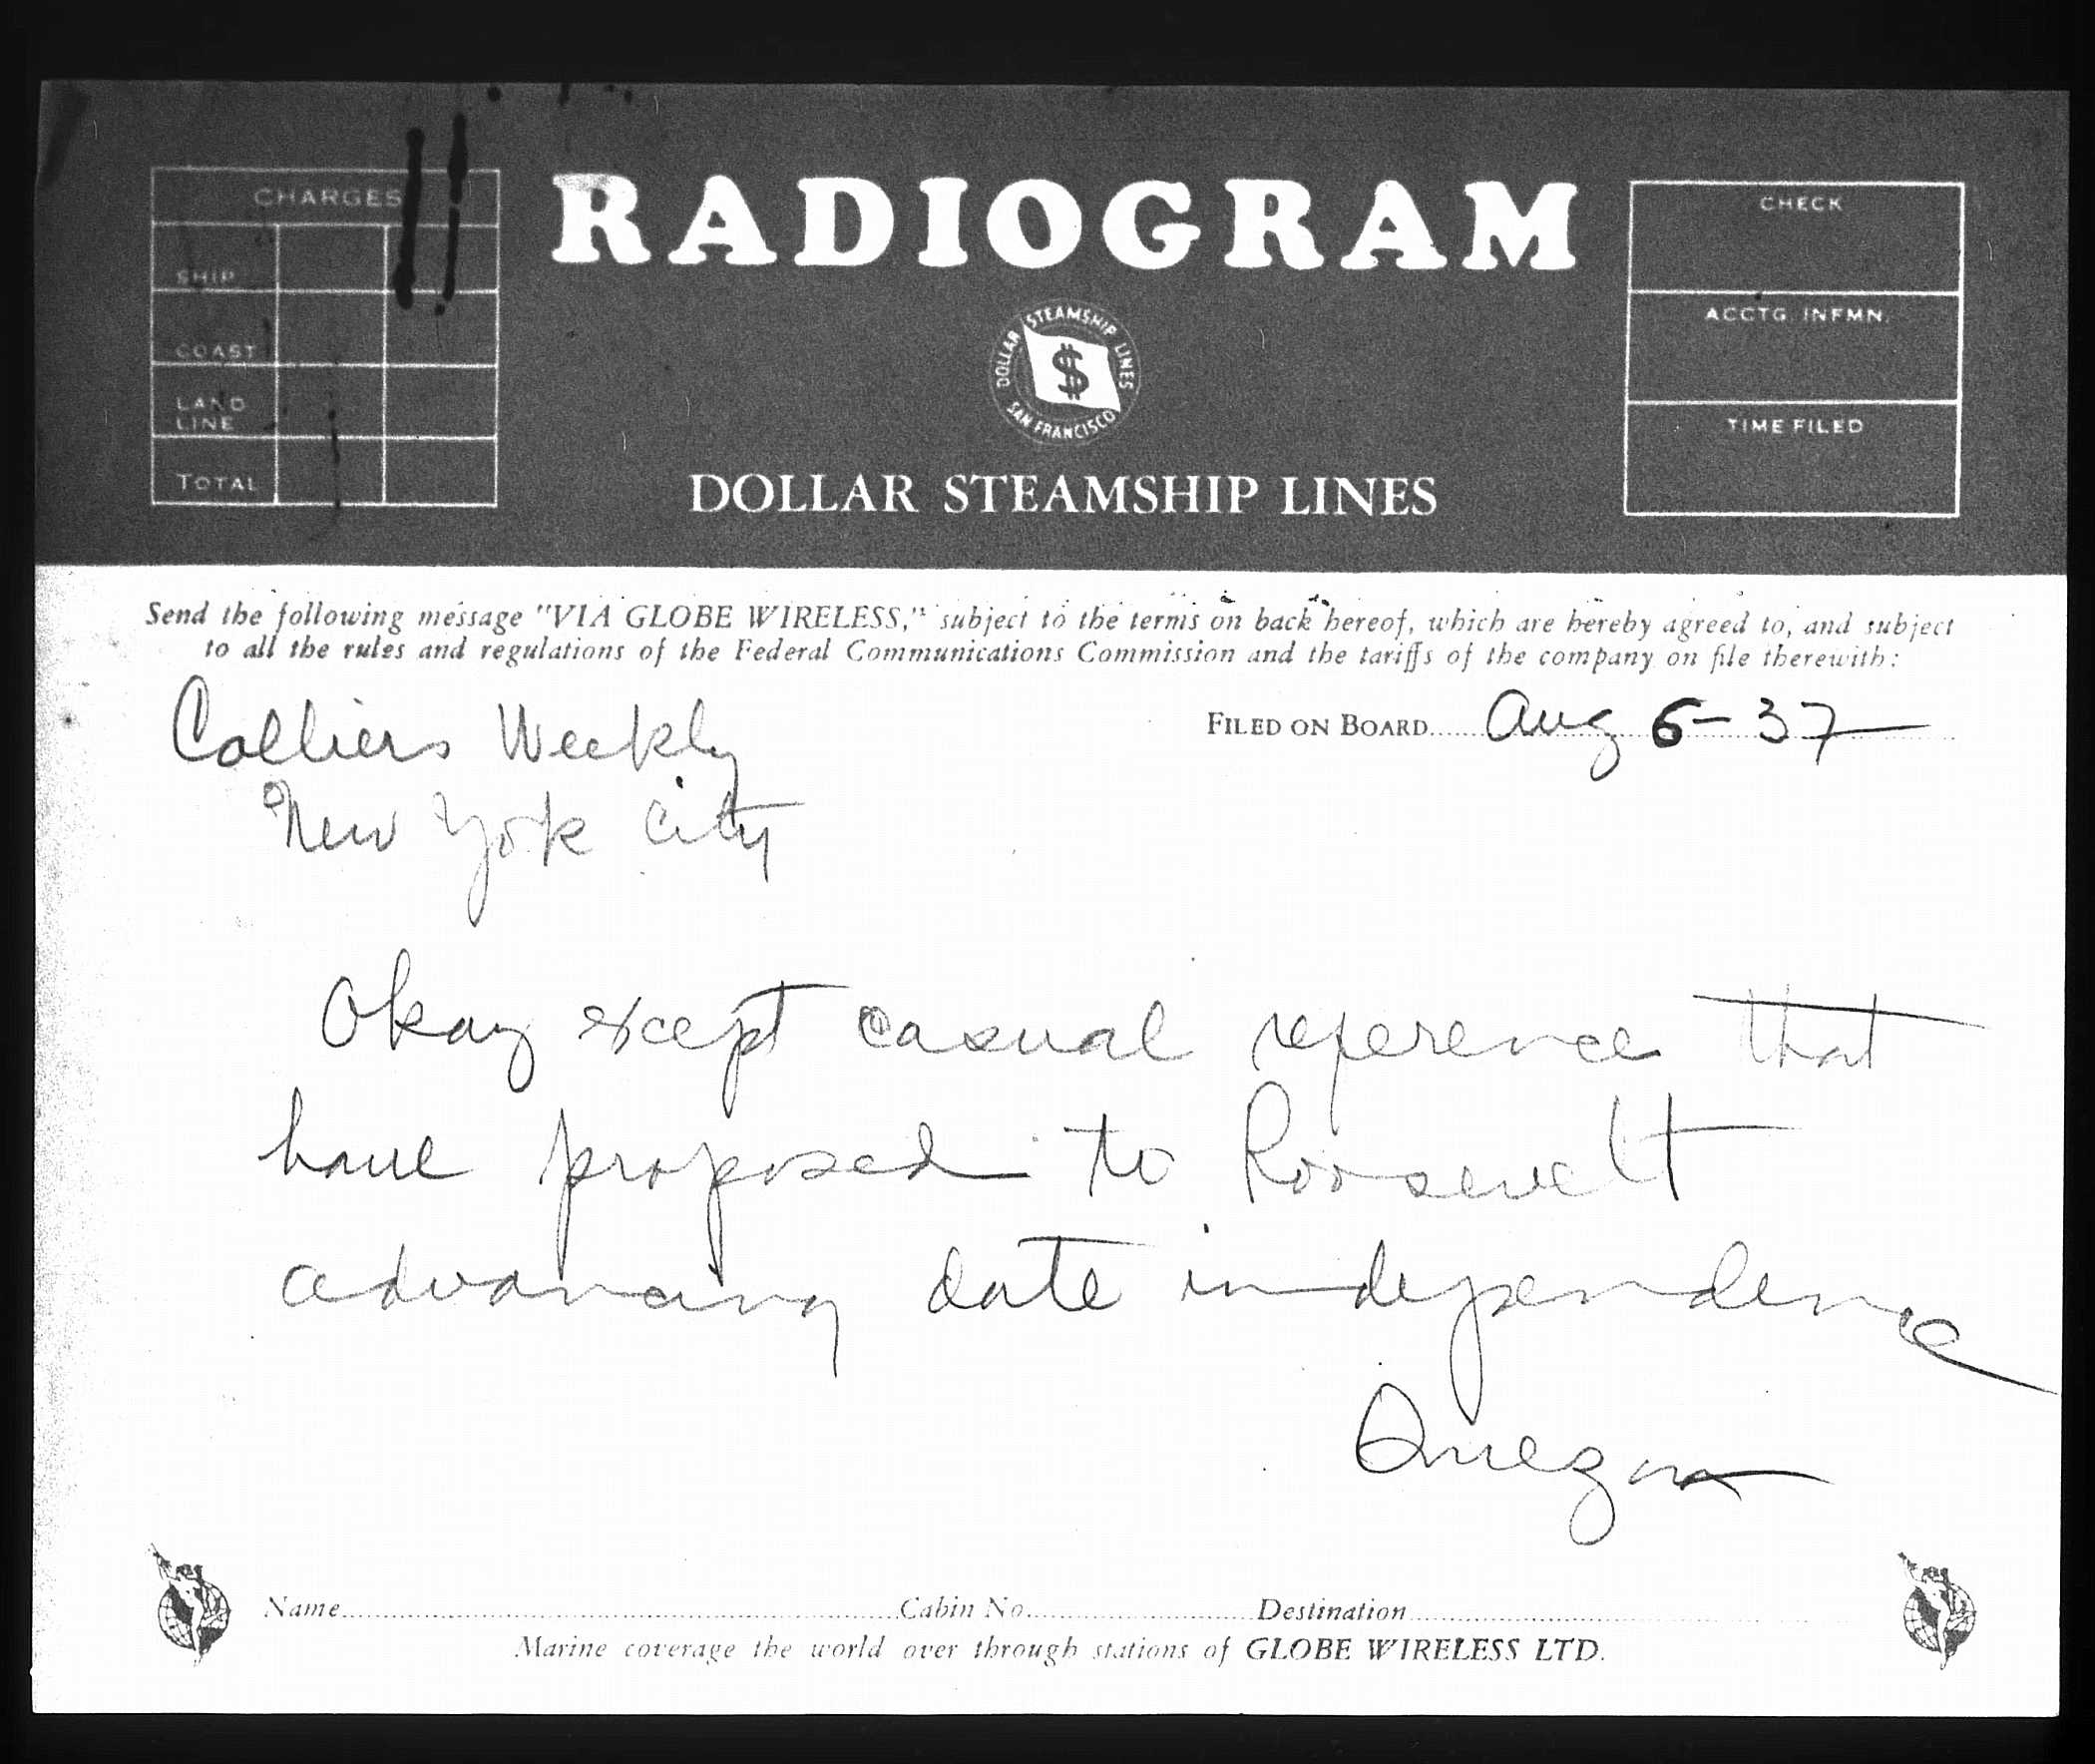 CHARGES
SHIP
COAST
LAND
LINE
TOTAL
RADIOGRAM
DOLLAR STEAMSHIP LINES
SAN FRANCISCO
$
DOLLAR STEAMSHIP LINES
CHECK
ACCTG. INFMN.
TIME FILED
Send the following message "VIA GLOBE WIRELESS," subject to the terms on back hereof, which are hereby agreed to, and subject
to all the rules and regulations of the Federal Communications Commission and the tariffs of the company on file therewith:
Colliers Weekly
FILED ON BOARD Aug 6-37
New York City
Okay except casual reference that
have proposed to Roosevelt
advancing date independence
Quezon
Name Cabin No. Destination
Marine coverage the world over through stations of GLOBE WIRELESS LTD.